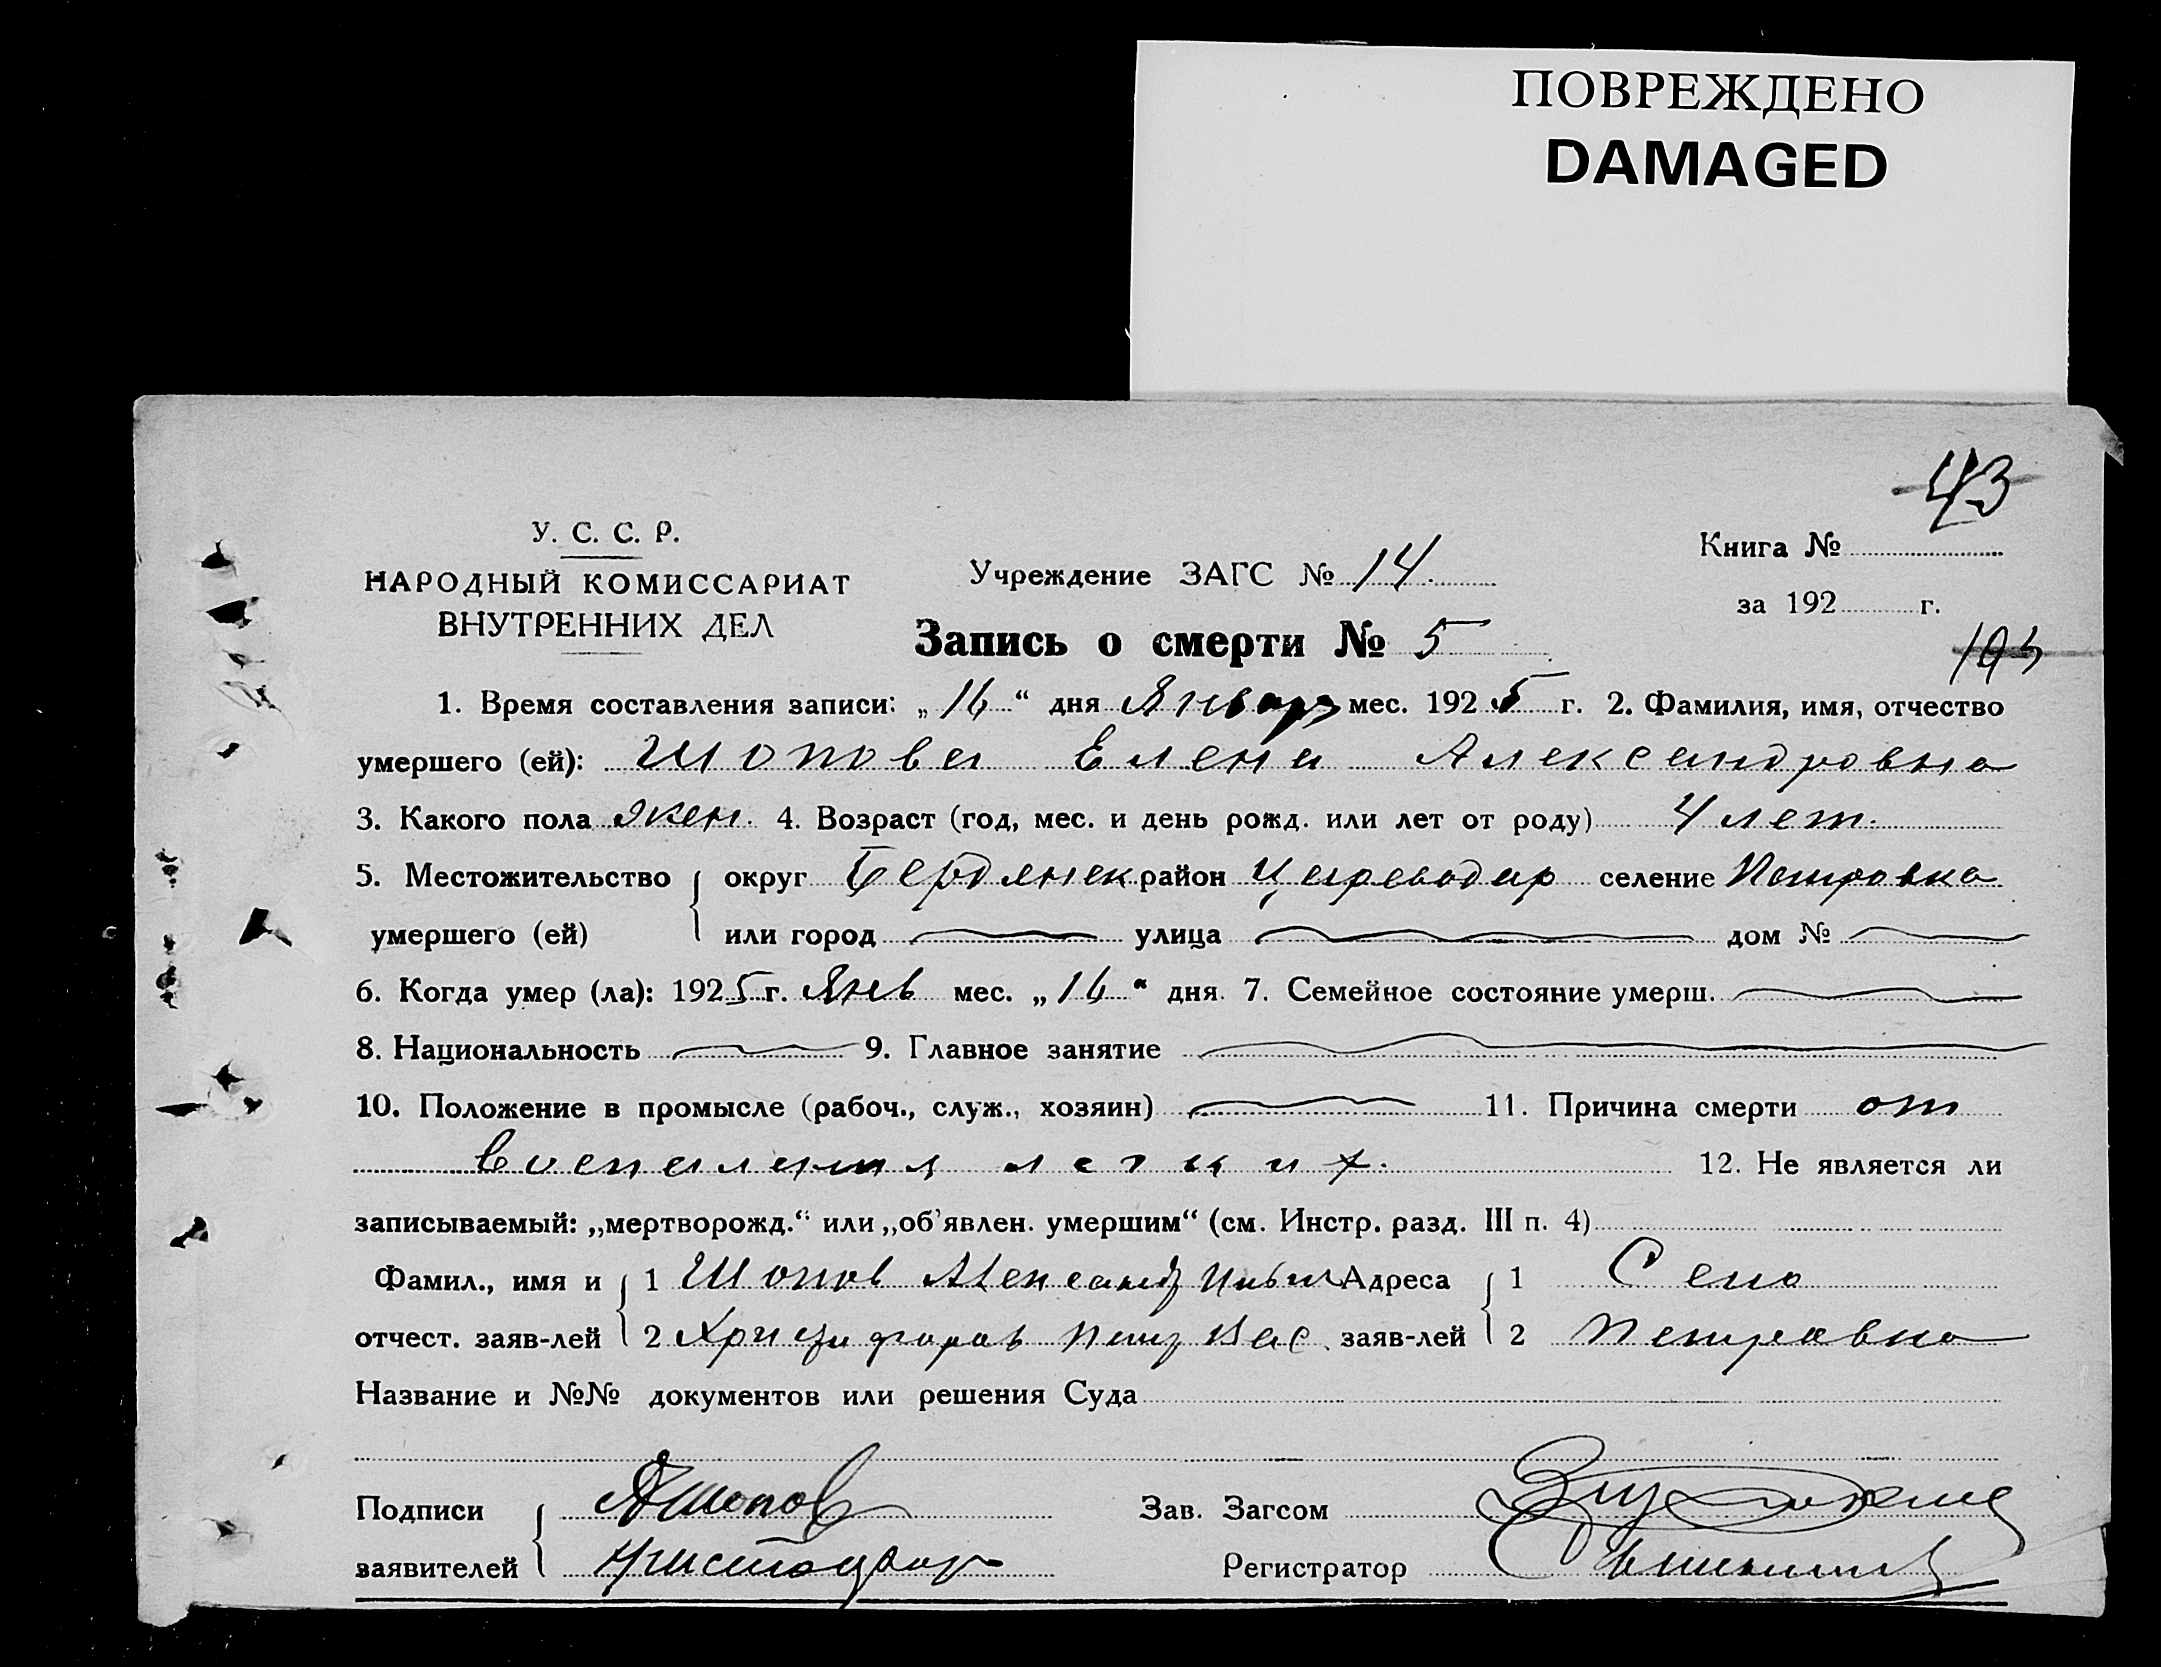 ПОВРЕЖДЕНО
DAMAGED
43
У. С. С. Р.
НАРОДНЫЙ КОМИССАРИАТ
ВНУТРЕННИХ ДЕЛ
Учреждение ЗАГС № 14
Книга №
за 192 г.
Запись о смерти № 5
1. Время составления записи: „16“ дня Января мес. 1925 г. 2. Фамилия, имя, отчество
умершего (ей): Шопова Елена Александровна
3. Какого пола жен. 4. Возраст (год, мес. и день рожд. или лет от роду) 4 лет.
5. Местожительство округ Бердянск район Цареводар селение Петровка
умершего (ей) или город улица дом №
6. Когда умер (ла): 1925 г. Янв мес. „16“ дня. 7. Семейное состояние умерш.
8. Национальность 9. Главное занятие
10. Положение в промысле (рабоч., служ., хозяин) 11. Причина смерти от
воспаления легких. 12. Не является ли
записываемый: „мертворожд.“ или „об'явлен. умершим“ (см. Инстр. разд. III п. 4)
Фамил., имя и 1 Шопов Александ Адреса 1 Село
отчест. заяв-лей 2 Петр Вас. заяв-лей 2 Петровка
Название и №№ документов или решения Суда
Подписи АШопов Зав. Загсом
заявителей Регистратор